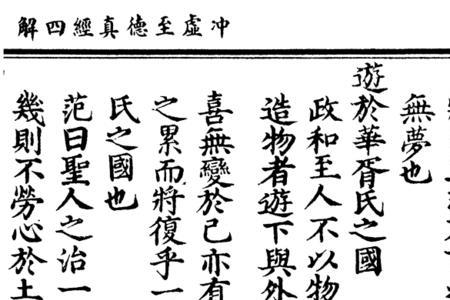 冲虛至德真經四解
無夢也
遊於華胥氏之國
政和至人不以物
造物者遊下與外
喜無變於已亦有
之累而將復乎一
氏之國也
范曰聖人之治一
幾則不勞心於土